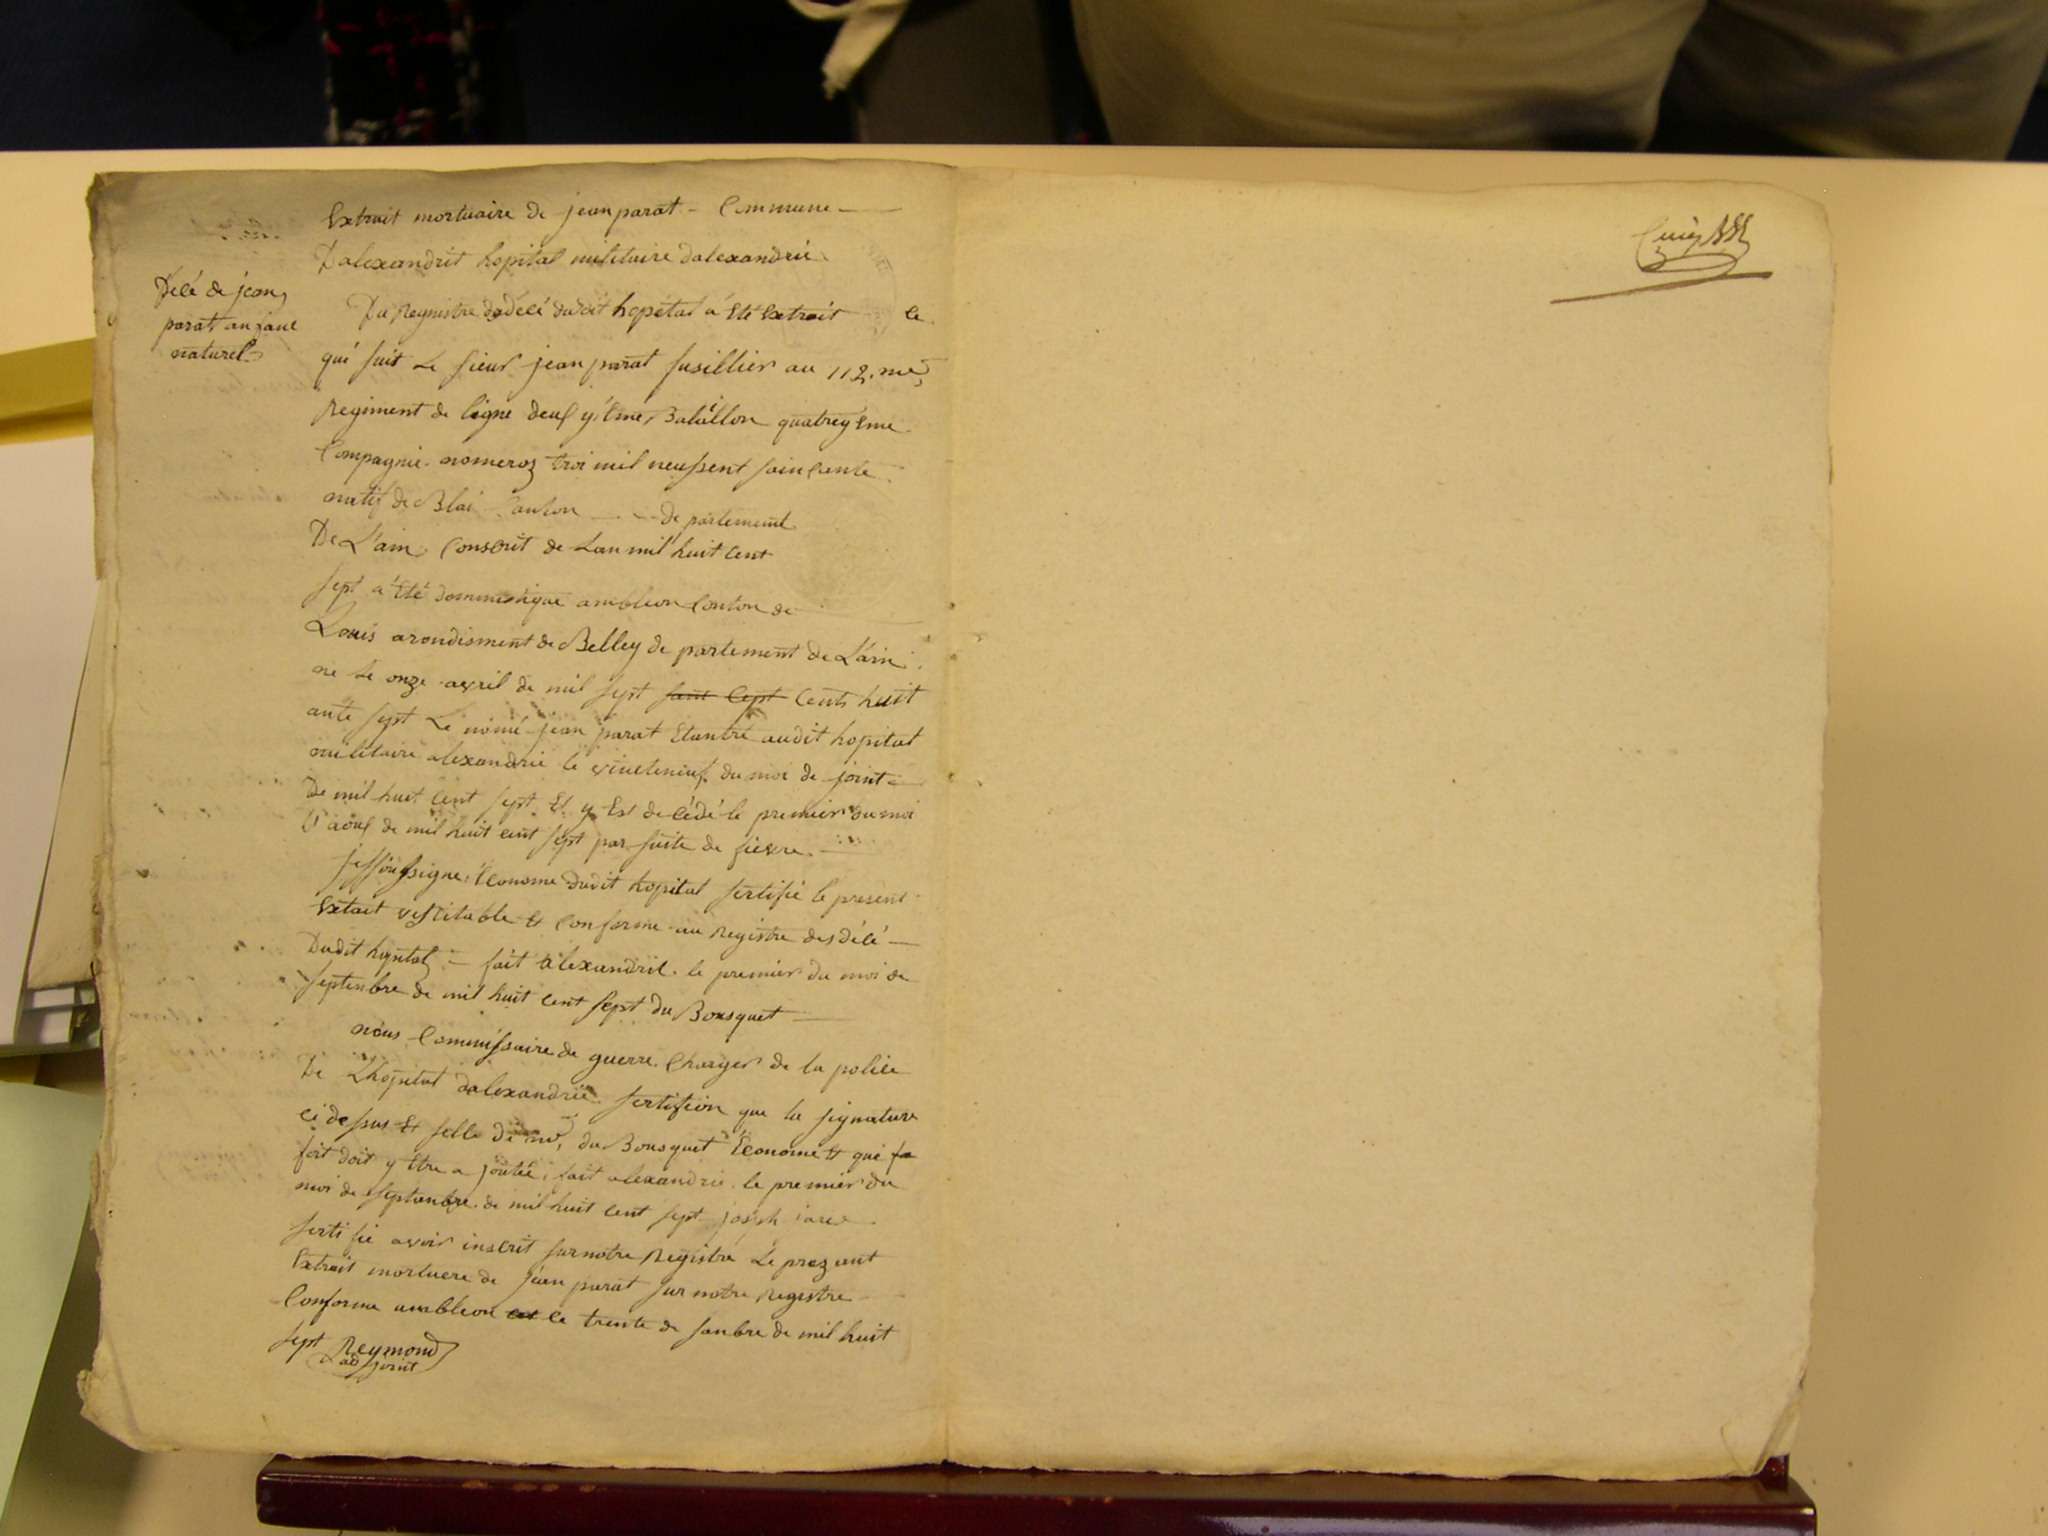 Extrait mortuaire de jean parat - Commune
Dalexandrit hopital militaire dalexandrie
Décé de jean
parat anfant
naturel
Du Regnistre dedécé dudit hopital a été Extrait ce
qui suit Le sieur jean parat fusillier au 112.me
Regiment de ligne deus yême Batallon quatreyême
Compagnie nomeroz troi mil neufsent sincante
natif de Blai Canton departement
De L'ain Conscrit de Lan mil huit cent
sept a été dommesique ambléon Conton de
Louis arondisment de Belley de partement de L'ain
ne le onze avril de mil sept sant sept Cents huit
ante sept Le nomé jean parat Etantré audit hopital
militaire alexandrie le vincteneuf du moi de joint
De mil huet cent sept Et y Est de cédé le premier du moi
D'aous de mil huit cent sept par suite de fievre
jessousigne Econome dudit hopital sertifie le present
Extait veritable Et Conforme au Registre des décé
Dudit hopital fait alexandrie le premier du moi de
septenbre de mil huit cent sept du Bousquet
nous Commissaire de guerre Charger de la police
De L'hopital dalexandrie sertifion que la signature
ci dessus Et selle de mr du Bousquet Econome Et que
foit doit y Etre a joutée fait alexandrie le premier du
moi de septanbre de mil huit cent sept joseph
serti fié avoir inscrit sur notre Registre Le prezant
Extrait mortuere de jean parat sur notre Registre
Conforme ambléon ce trente de sanbre de mil huit
sept Reymond
adjoint